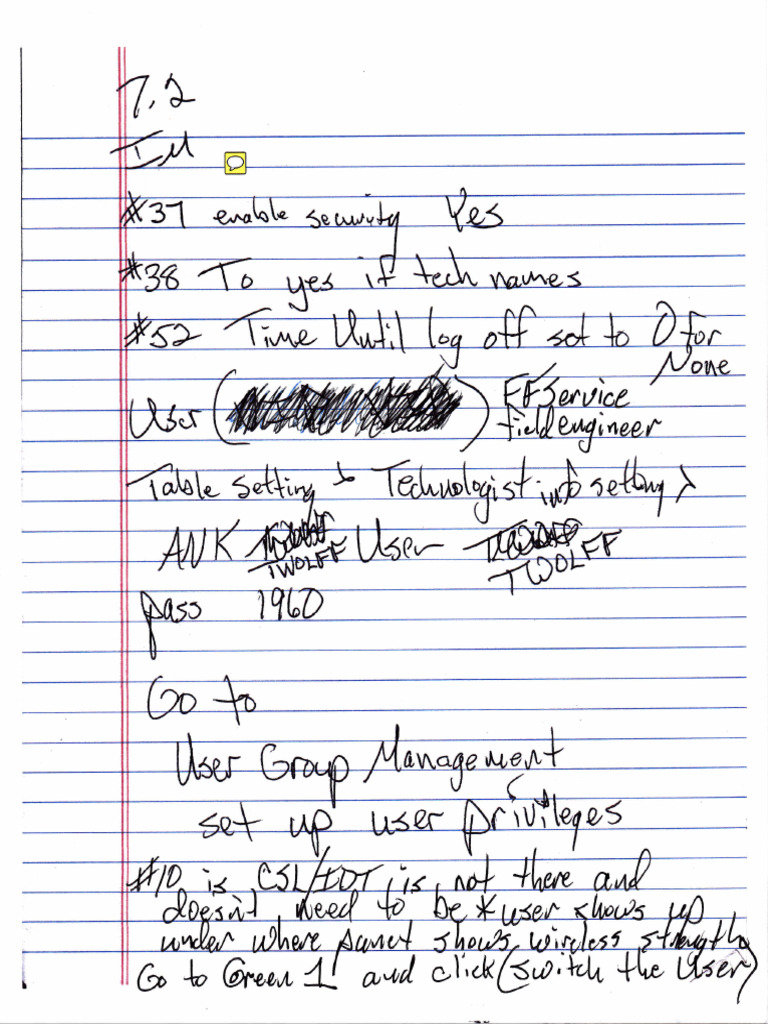 7.2
IM
#37 enable security Yes
#38 To yes if tech names
#52 Time Until log off set to 0 for
None
User ( ) EFService
field engineer
Table Setting → Technologist info setting >
ANK TWOLFF User TWOLFF
pass 1960
Go to
User Group Management
set up user privileges
#10 is CSL/IDT is not there and
doesn't need to be * user shows up
under where panel shows wireless strength
Go to Green 1 and click (switch the User)